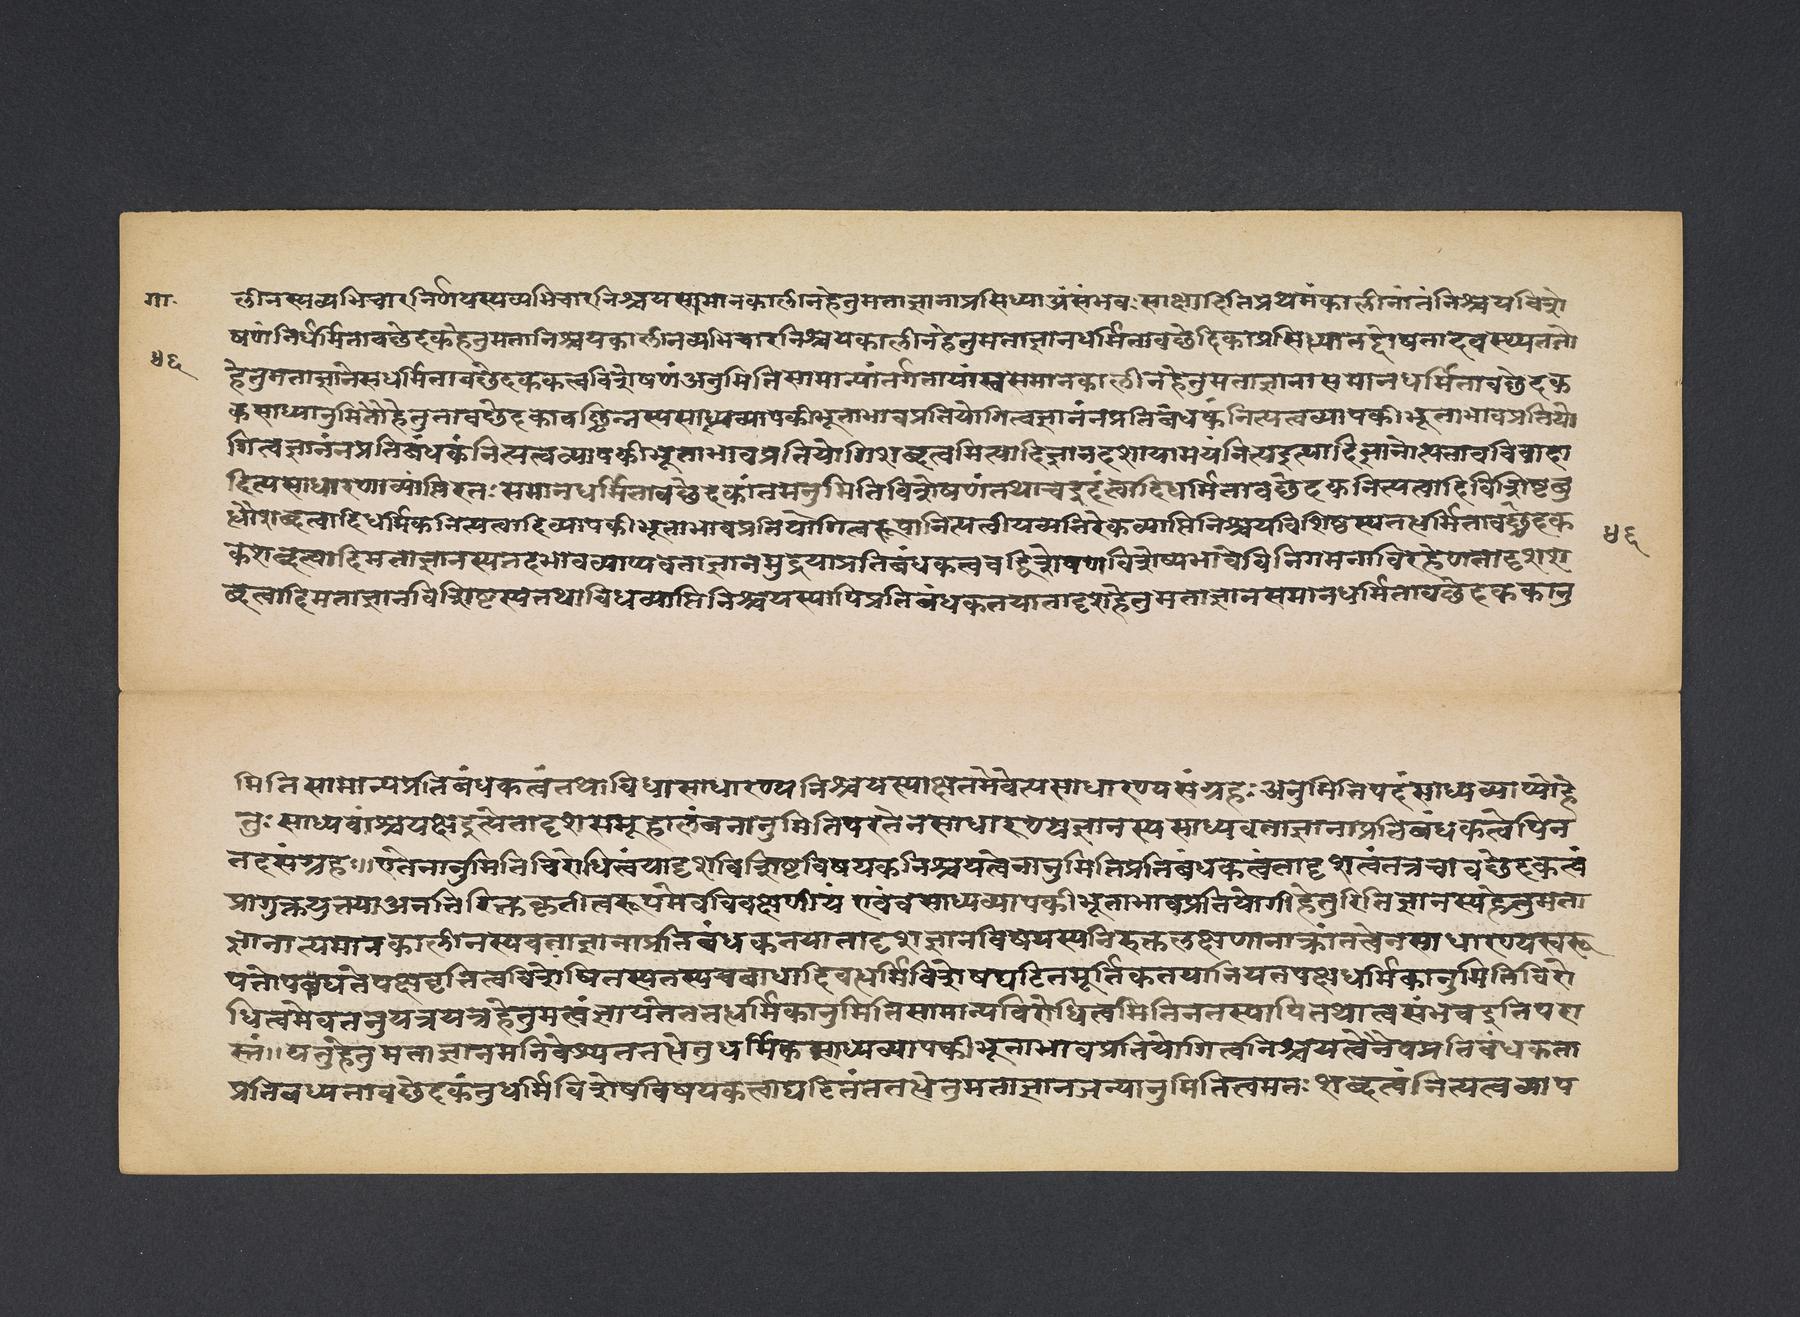 गा.
लीनस्यव्यभिचारनिर्णयस्यव्यभिचारनिश्चयसामानकालीनहेतुमत्ताज्ञानाप्रसिध्याअंसंभवःसाक्षादितिप्रथमंकालीनांतंनिश्चयविशे
४६
षणंनिर्धर्मितावछेदकहेतुमत्तानिश्चयकालीनव्यभिचारनिश्चयकालीनहेतुमत्ताज्ञानधर्मितावछेदिकाप्रसिध्यातद्दोषतादवस्थ्यनत्तो
हेतुमत्ताज्ञानेसधर्मितावछेदककत्वविशेषणंअनुमितिसामान्यांतर्गतायांस्वसमानकालीनहेतुमत्ताज्ञानासमानधर्मितावछेदक
कसाध्यानुमितौहेतुतावछेदकावछिन्नस्यसाध्यव्यापकीभूताभावप्रतियोगित्वज्ञानंनप्रतिबंधकंनित्यत्वव्यापकीभूताभावप्रतियो
गित्वज्ञानंनप्रतिबंधकंनित्यत्वव्यापकीभूताभावप्रतियोगिशब्दत्वमित्यादिज्ञानदशायामयंनित्यइत्यादिज्ञानोत्पत्तावविवादा
दित्यसाधारणाव्याप्तिरतःसमानधर्मितावछेदकांतमनुमितिविशेषणंतथाचइदंत्वादिधर्मितावछेदकनित्यत्वादिविशिष्टबु
धौशब्दत्वादिधर्मिकनित्यत्वादिव्यापकीभूताभावप्रतियोगित्वरूपानित्यत्वीयव्यतिरेकव्याप्तिनिश्चयविशिष्ठस्यतद्धर्मितावछेदक
४६
कशब्दत्वादिमत्ताज्ञानस्यतदभावव्याप्यवत्ताज्ञानमुद्रयाप्रतिबंधकत्ववद्विशेषणविशेष्यभावेविनिगमनाविरहेणतादृशश
ब्दत्वादिमत्ताज्ञानविशिष्टस्यतथाविधव्याप्तिनिश्चयस्यापिप्रतिबंधकतयातादृशहेतुमत्ताज्ञानसमानधर्मितावछेदककानु
मितिसामान्यप्रतिबंधकत्वंतथाविधासाधारण्यनिश्चयस्याक्षतमेवेत्यसाधारण्यसंग्रहःअनुमितिपदंसाध्यव्याप्योहे
तुःसाध्यवांश्चपक्षइत्येतादृशसमूहालंबनानुमितिपरंतेनसाधारण्यज्ञानस्यसाध्यवत्ताज्ञानाप्रतिबंधकत्वेपिन
तदसंग्रहः॥एतेनानुमितिविरोधित्वंयादृशविशिष्टविषयकनिश्चयत्वेनानुमितिप्रतिबंधकत्वंतादृशत्वंतत्रचावछेदकत्वं
प्रागुक्तयुक्तयाअनतिरिक्तवृत्तीत्वरूपमेवविवक्षणीयंएवंचसाध्यव्यापकीभूताभावप्रतियोगीहेतुरितिज्ञानस्यहेतुमत्ता
ज्ञानात्यमानकालीनस्यवत्ताज्ञानाप्रतिबंधकतयातादृशज्ञानविषयस्यनिरुक्तलक्षणानाक्रांतत्वेनसाधारण्यस्वरू
पतोपवद्यपतेपक्षवृत्तित्वविशेषितस्यतस्यचबाधादिवद्धर्मिविशेषघटितमूर्तिकतयानियतपक्षधर्मिकानुमितिविरो
धित्वमेवतनुयत्रयत्रहेतुमत्वंज्ञायतेतत्तद्धर्मिकानुमितिसामान्यविरोधित्वमितिनतस्यापितथात्वसंभवइतिपरा
स्तं॥यत्तुहेतुमत्ताज्ञानमनिवेश्यतत्तद्धेतुधर्मिकसाध्यव्यापकीभूताभावप्रतियोगित्वनिश्चयत्वेनैवप्रतिबंधकता
प्रतिबध्यतावछेदकंतुधर्मिविशेषविषयकत्वाघटितंतत्तद्धेतुमत्ताज्ञानजन्यानुमितित्वमतःशब्दत्वंनित्यत्वव्याप